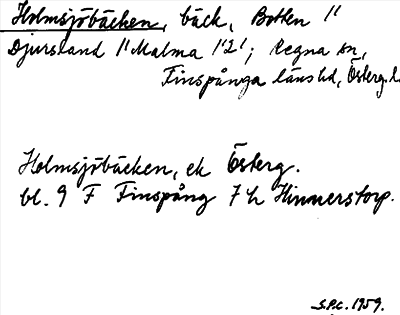 Holmsjöbäcken, bäck, Botten 1/1
Djursland 1/1 Malma 1/2 1; Regna sn,
Finspånga länshd, Österg. l.
Holmsjöbäcken, ek Österg.
bl. 9 F Finspång 7 h Hinnerstorp.
S.P.C. 1959.